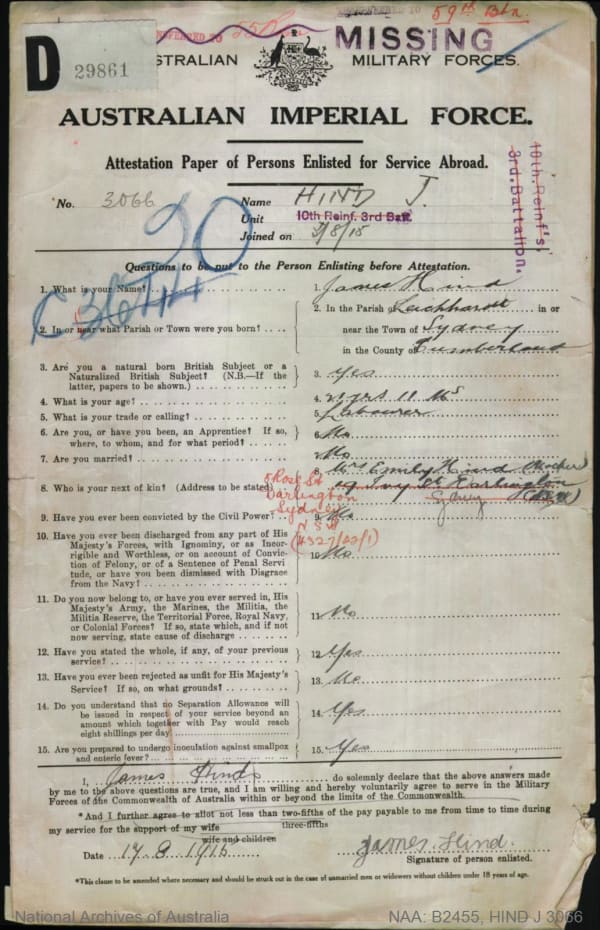 TRANSFERRED TO 55 Bn
TRANSFERRED TO 59th Btn
MISSING
D
29861
AUSTRALIAN MILITARY FORCES.
AUSTRALIAN IMPERIAL FORCE.
Attestation Paper of Persons Enlisted for Service Abroad.
No. 3066
Name HIND J.
Unit 10th Reinf. 3rd Batt.
Joined on 3/8/15
10th. Reinf's,
3rd. Battalion.
20
Questions to be put to the Person Enlisting before Attestation.
1. What is your Name?
1. James Hind
2. In or near what Parish or Town were you born?
2. In the Parish of Leichhardt in or
near the Town of Sydney
in the County of Cumberland
3. Are you a natural born British Subject or a
Naturalized British Subject? (N.B.—If the
latter, papers to be shown.)
3. Yes
4. What is your age?
4. yrs 11 Ms
5. What is your trade or calling?
5. Labourer
6. Are you, or have you been, an Apprentice? If so,
where, to whom, and for what period?
6. No
7. Are you married?
7. No
8. Who is your next of kin? (Address to be stated)
8. Mrs Emily Hind (Mother)
Ivy St Darlington
Sydney NSW
5 Rose St
Darlington
Sydney
NSW
9. Have you ever been convicted by the Civil Power?
9. No
10. Have you ever been discharged from any part of His
Majesty's Forces, with Ignominy, or as Incor-
rigible and Worthless, or on account of Convic-
tion of Felony, or of a Sentence of Penal Servi
tude, or have you been dismissed with Disgrace
from the Navy?
10. No
11. Do you now belong to, or have you ever served in, His
Majesty's Army, the Marines, the Militia, the
Militia Reserve, the Territorial Force, Royal Navy,
or Colonial Forces? If so, state which, and if not
now serving, state cause of discharge
11. No
12. Have you stated the whole, if any, of your previous
service?
12. Yes
13. Have you ever been rejected as unfit for His Majesty's
Service? If so, on what grounds?
13. No
14. Do you understand that no Separation Allowance will
be issued in respect of your service beyond an
amount which together with Pay would reach
eight shillings per day
14. Yes
15. Are you prepared to undergo inoculation against smallpox
and enteric fever?
15. Yes
I, James Hind do solemnly declare that the above answers made
by me to the above questions are true, and I am willing and hereby voluntarily agree to serve in the Military
Forces of the Commonwealth of Australia within or beyond the limits of the Commonwealth.
*And I further agree to allot not less than two-fifths of the pay payable to me from time to time during
three-fifths
my service for the support of my wife
wife and children
Date 17.8.1915
James Hind.
Signature of person enlisted.
*This clause to be amended where necessary and should be struck out in the case of unmarried men or widowers without children under 18 years of age.
National Archives of Australia
NAA: B2455, HIND J 3066